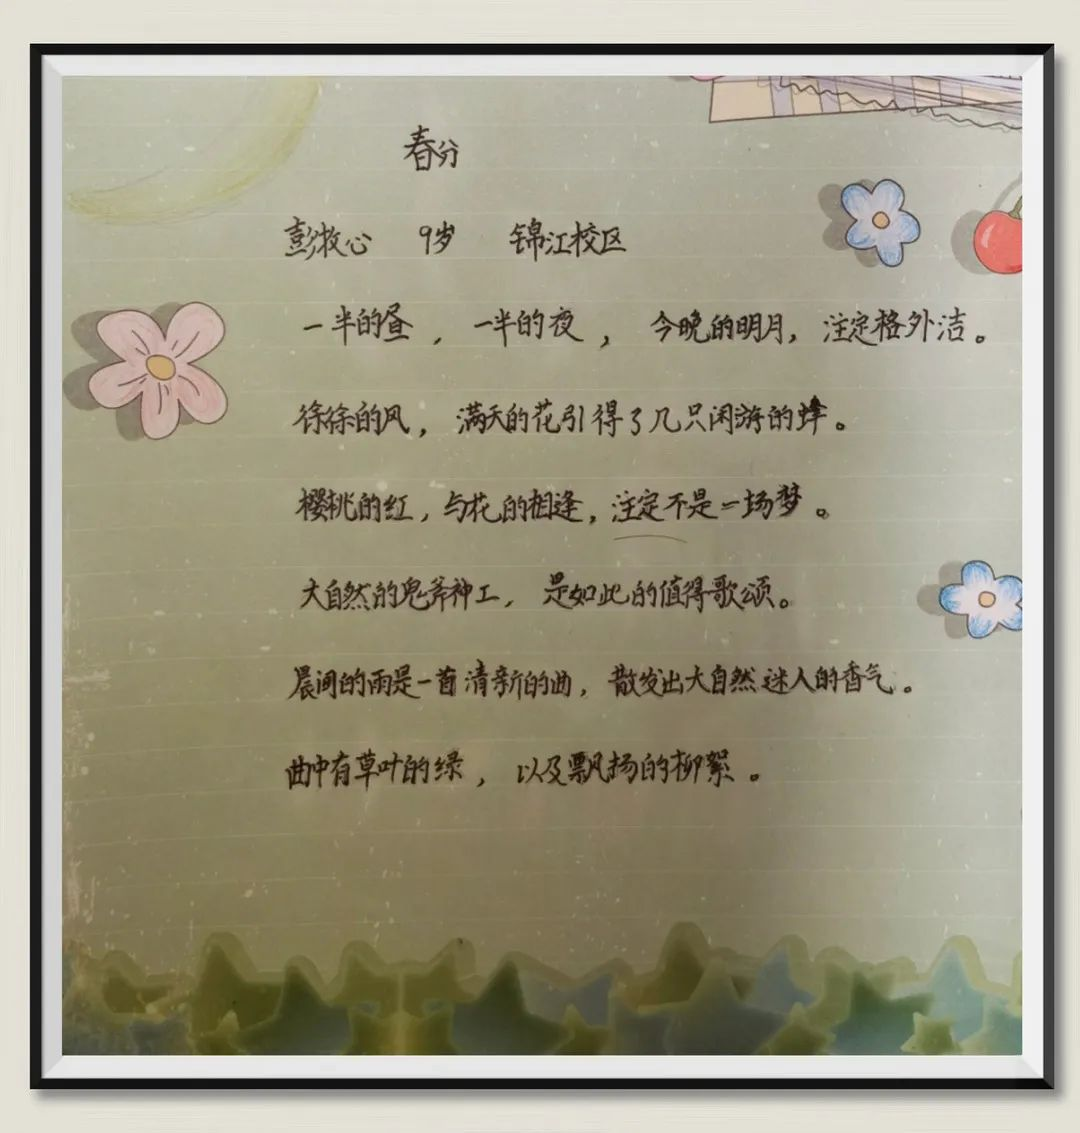 春分
彭牧心 9岁 锦江校区
一半的昼，一半的夜，今晚的明月，注定格外洁。
徐徐的风，满天的花引得了几只闲游的蜂。
樱桃的红，与花的相逢，注定不是一场梦。
大自然的鬼斧神工，是如此的值得歌颂。
晨间的雨是一首清新的曲，散发出大自然迷人的香气。
曲中有草叶的绿，以及飘扬的柳絮。